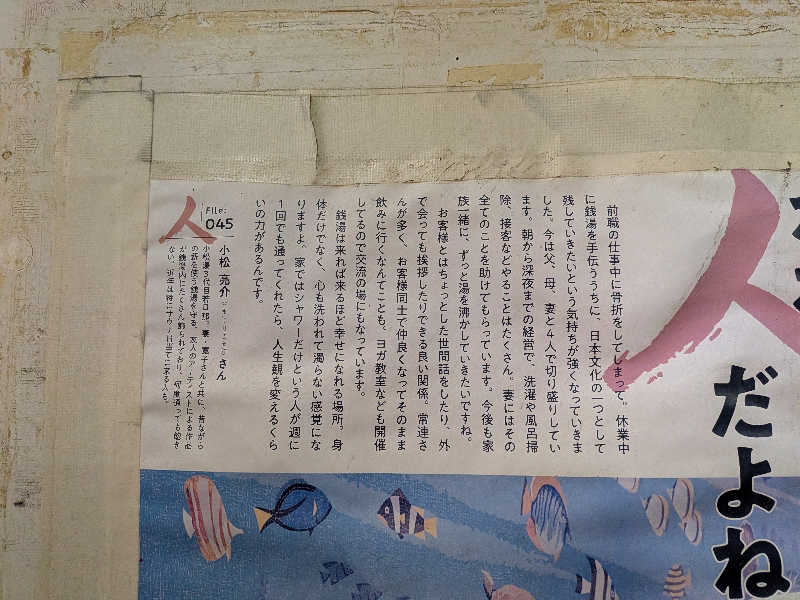 人
だよね
前職の仕事中に骨折をしてしまって。休業中
に銭湯を手伝ううちに、日本文化の一つとして
残していきたいという気持ちが強くなっていきま
した。今は父、母、妻と4人で切り盛りしてい
ます。朝から深夜までの経営で、洗濯や風呂掃
除、接客などやることはたくさん。妻にはその
全てのことを助けてもらっています。今後も家
族一緒に、ずっと湯を沸かしていきたいですね。
お客様とはちょっとした世間話をしたり、外
で会っても挨拶したりできる良い関係。常連さ
んが多く、お客様同士で仲良くなってそのまま
飲みに行くなんてことも、ヨガ教室なども開催
してるので交流の場にもなっています。
銭湯は来れば来るほど幸せになれる場所。身
体だけでなく、心も洗われて濁らない感覚にな
りますよ。家ではシャワーだけという人が週に
1回でも通ってくれたら、人生観を変えるくら
いの力があるんです。
人
File:
045
小松 亮介 さん
小松湯3代目若旦那。妻・恵子さんと共に、昔ながら
の薪を使う銭湯を守る。友人のアーティストによる作品
が銭湯内にたくさん飾られており、何度通っても飽き
ない。近年は特にサウナ目当てに来る人も。